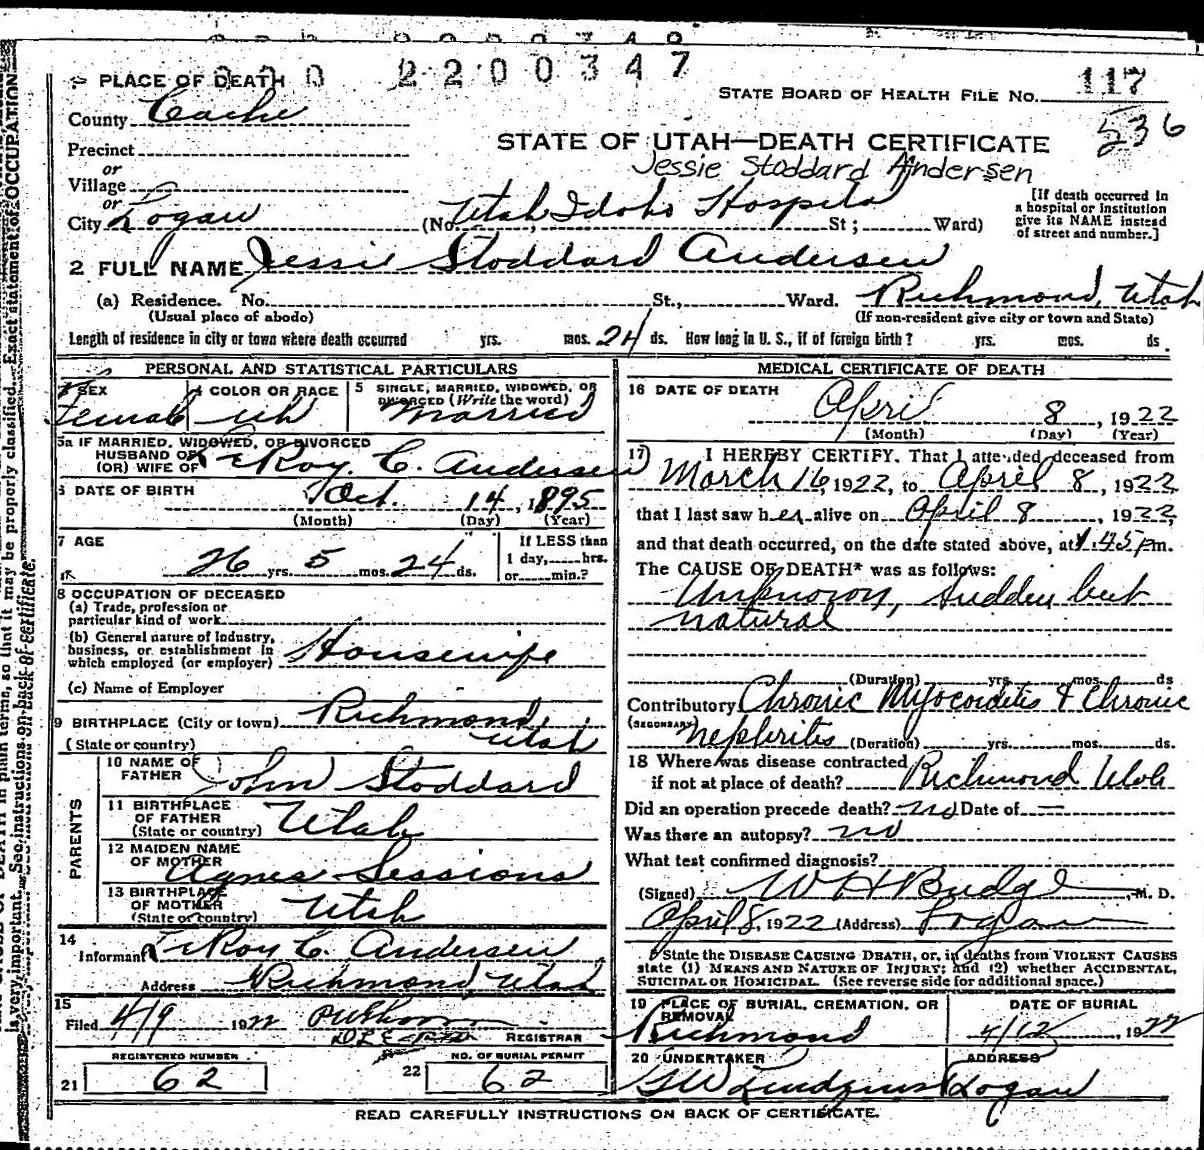 2200347
PLACE OF DEATH
STATE BOARD OF HEALTH FILE NO. 117
536
County Cache
STATE OF UTAH—DEATH CERTIFICATE
Precinct
Jessie Stoddard Andersen
or
Village
or
City Logan (No. Utah Idaho Hospital St; Ward)
[If death occurred in
a hospital or institution
give its NAME instead
of street and number.]
2 FULL NAME Jessie Stoddard Andersen
(a) Residence. No. St., Ward. Richmond, Utah
(Usual place of abode) (If non-resident give city or town and State)
Length of residence in city or town where death occurred yrs. mos. 24 ds. How long in U. S., if of foreign birth? yrs. mos. ds.
PERSONAL AND STATISTICAL PARTICULARS
3 SEX Female
4 COLOR OR RACE wh
5 SINGLE, MARRIED, WIDOWED, OR
DIVORCED (Write the word)
Married
5a IF MARRIED, WIDOWED, OR DIVORCED
HUSBAND OF
(OR) WIFE OF LeRoy C. Andersen
6 DATE OF BIRTH Oct. 14, 1895
(Month) (Day) (Year)
7 AGE
26 yrs. 5 mos. 24 ds.
If LESS than
1 day, hrs.
or min.?
8 OCCUPATION OF DECEASED
(a) Trade, profession or
particular kind of work
(b) General nature of Industry,
business, or establishment in
which employed (or employer) Housewife
(c) Name of Employer
9 BIRTHPLACE (City or town) Richmond,
(State or country) Utah
PARENTS
10 NAME OF
FATHER John Stoddard
11 BIRTHPLACE
OF FATHER
(State or country) Utah
12 MAIDEN NAME
OF MOTHER Agnes Sessions
13 BIRTHPLACE
OF MOTHER
(State or country) Utah
14
Informant LeRoy C. Andersen
Address Richmond, Utah
15
Filed 4/9 1922
REGISTRAR
REGISTERED NUMBER
21 62
NO. OF BURIAL PERMIT
22 62
MEDICAL CERTIFICATE OF DEATH
16 DATE OF DEATH
April 8, 1922
(Month) (Day) (Year)
17 I HEREBY CERTIFY, That I attended deceased from
March 16, 1922, to April 8, 1922
that I last saw her alive on April 8, 1922,
and that death occurred, on the date stated above, at 1.45 pm.
The CAUSE OF DEATH* was as follows:
Unknown, Sudden but
natural
(Duration) yrs. mos. ds
Contributory Chronic Myocarditis & Chronic
(SECONDARY) Nephritis (Duration) yrs. mos. ds.
18 Where was disease contracted
if not at place of death? Richmond Utah
Did an operation precede death? no Date of —
Was there an autopsy? no
What test confirmed diagnosis?
(Signed) W H Budge, M. D.
April 8, 1922 (Address) Logan
* State the DISEASE CAUSING DEATH, or, in deaths from VIOLENT CAUSES
state (1) MEANS AND NATURE OF INJURY; and (2) whether ACCIDENTAL,
SUICIDAL OR HOMICIDAL. (See reverse side for additional space.)
19 PLACE OF BURIAL, CREMATION, OR
REMOVAL
Richmond
DATE OF BURIAL
4/12, 1922
20 UNDERTAKER
G W Lindquist
ADDRESS
Logan
READ CAREFULLY INSTRUCTIONS ON BACK OF CERTIFICATE.
in plain terms, so that it may be properly classified. Exact statement of OCCUPATION
is very important. See instructions on back of certificate.